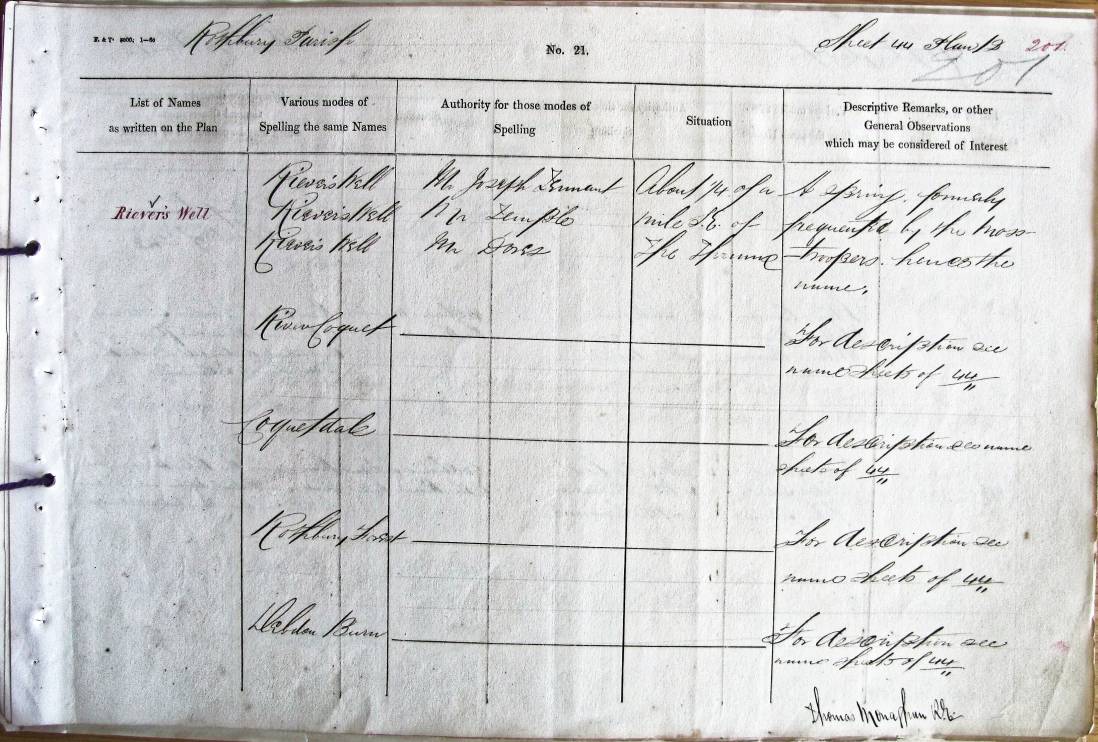 E. & T. 5000; 1—60
Rothbury Parish
No. 21.
Sheet 44 Plan 13
201
201
List of Names
as written on the Plan
Various modes of
Spelling the same Names
Authority for those modes of
Spelling
Situation
Descriptive Remarks, or other
General Observations
which may be considered of Interest
Riever's Well
Riever's Well
Riever's Well
Riever's Well
Mr Joseph Tennant
Mr Temple
Mr Dores
About 1/4 of a
mile S.E. of
The
A spring, formerly
frequented by the Moss-
troopers. hence the
name.
River Coquet
For description see
name sheets of 44
Coquetdale
For description see name
sheets of 44
Rothbury Forest
For description see
name sheets of 44
Debdon Burn
For description see
name sheets of 44
Thomas Monaghan R.E.